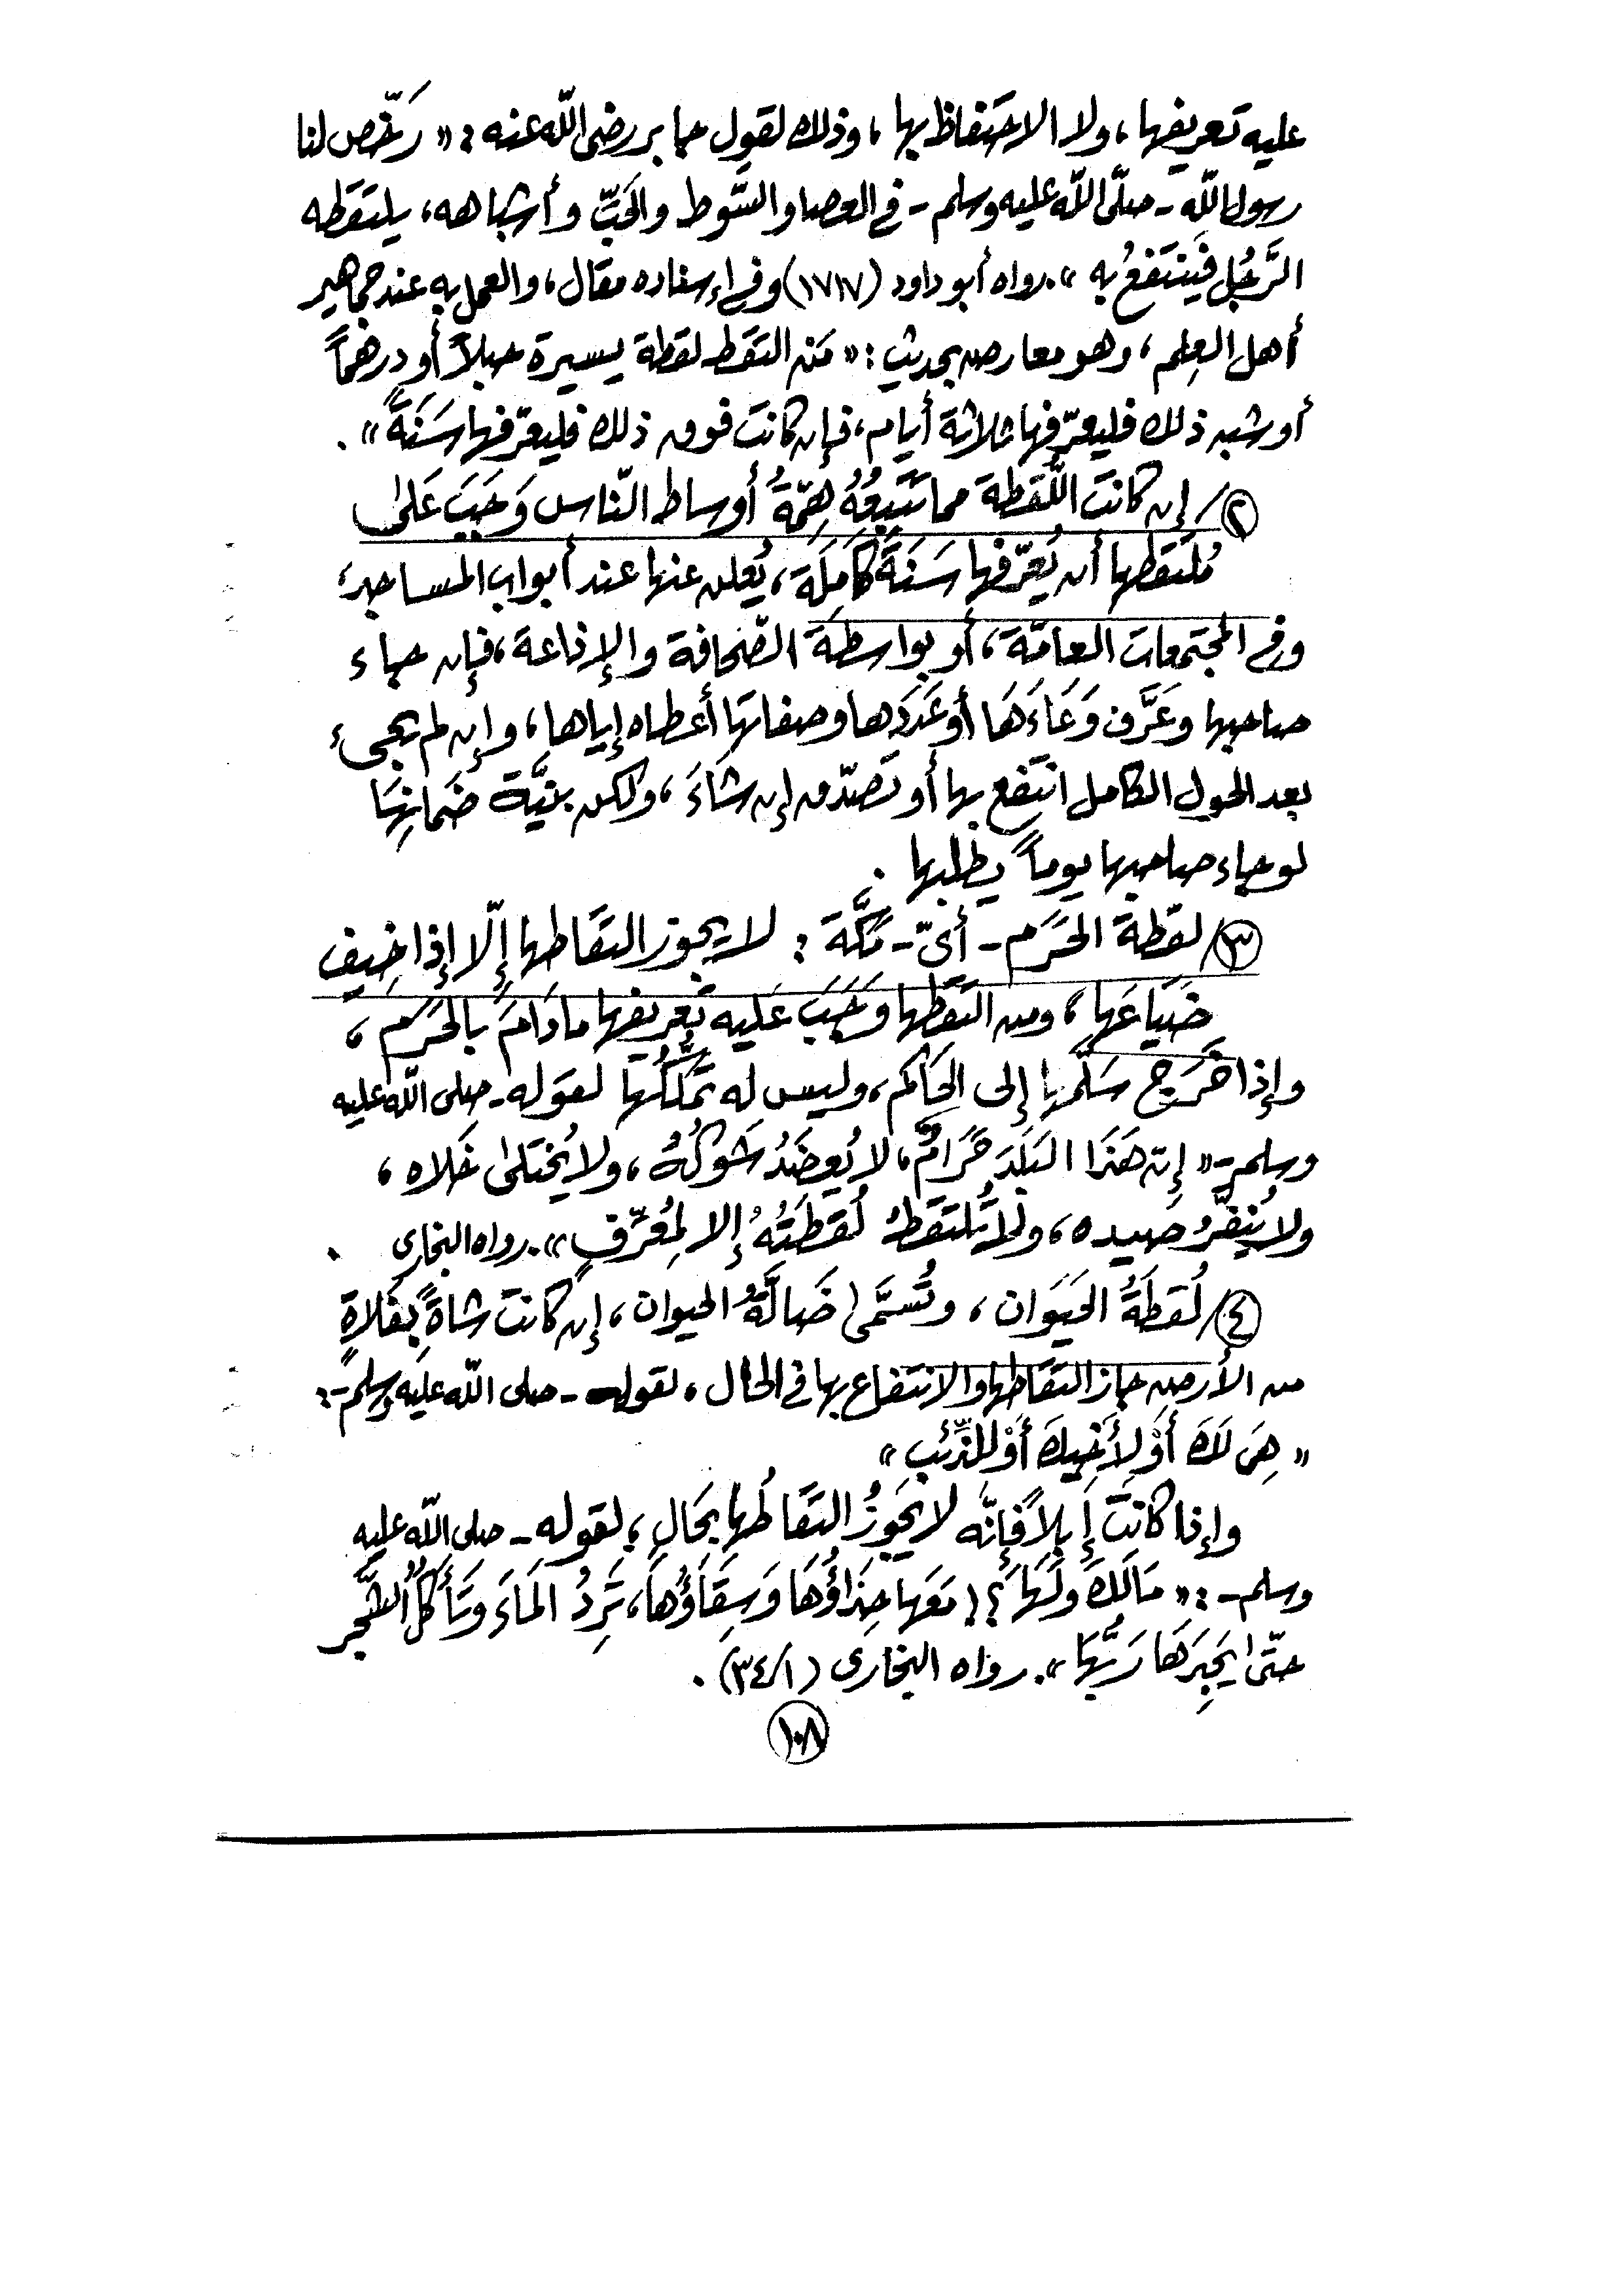 عليه تعريفها، ولا الاحتفاظ بها، وذلك لقول جابر رضى الله عنه: « رَخّص لنا
رسول الله - صلَّى الله عليه وسلم - في العصا والسَّوط والحَبِّ وأشباهه، يلتقطه
الرَّجُل فَيَنتَفعُ به ». رواه أبو داود (١٧١٧) وفي إسناده مقال، والعمل به عند جماهير
أهل العِلم، وهو معارض بحديث: « مَن التقط لقطة يسيرة حبلاً أو درهماً
أو شبه ذلك فليعرّفها ثلاثة أيام، فإن كانت فوق ذلك فليعرّفها سَنَةً ».
٢/ إن كانت اللُّقطة مما تَتَبعُهُ هِمّةُ أوساط النّاس وَجَبَ عَلى
مُلتقطها أن يُعَرّفها سَنَةً كَامَلَة، يُعلن عنها عند أبواب المساجد،
وفي المجتمعات العامّة، أو بواسطة الصّحافة والإذاعة، فإن جاء
صاحبها وعَرَّف وَعَاءَهَا أو عَدَدَها وصفاتها أعطاه إياها، وإن لم يجىء
بعد الحول الكامل انتفع بها أو تصَدّق إن شَاءَ، ولكن بنيَّة ضَمانِهَا
لو جاء صاحبها يوماً يطلبها .
٣/ لقطة الحَرَم - أىّ - مَكَّة : لا يجوز التقاطها إلّا إذا خِيف
ضَيَاعَها، ومن التقطها وَجَبَ عَليه تعريفها مادَامَ بالحَرَم،
وإذا خَرَج سَلّمها إلى الحَاكم، وليس له تَمَلّكُها لقوله - صلى الله عليه
وسلم - « إن هَذا البَلَدَ حَرَامٌ، لا يُعضَدُ شَوكُهُ، ولا يُختَلى خَلاه،
ولا يُنفَّرُ صيده، ولا تُلتَقَطُ لُقَطَتُهُ إلا لمُعَرِّفٍ ». رواه البخارى .
٤/ لُقطَةُ الحَيَوان، وتُسَمَّى ضَالَّةُ الحيوان، إن كانت شاةً بفَلاةٍ
من الأرض جاز التقاطها والانتفاع بها في الحال، لقوله - صلى الله عليه وسلم -:
« هِىَ لَكَ أَوْ لأَخِيكَ أَوْ للذِّئبِ »
وإذا كانت إبلاً فإنَّه لا يَجُوزُ التقَاطُها بحَالٍ، لقوله - صلى الله عليه
وسلم - : « مَالَكَ ولَهَا ؟! مَعَها حِذَاؤُهَا وَسِقَاؤُها، تَرِدُ المَاءَ وتَأكُلُ الشَّجَر
حتّى يَجِدَهَا رَبُّهَا ». رواه البخارى (٣٤/١) .
١٠٨